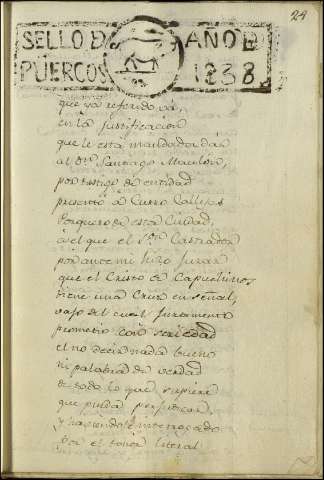 24
SELLO D AÑO D
PUERCOS 1838
que ya referido vá,
en la justificacion
que le está mandada dár
al Dn. Santiago Maulon,
por testigo de entidad
presentó a Curro Callejas
Porquero de esta Ciudad,
a el que el Sr. Castrador
por ante mi hizo jurar
que el Cristo de Capuchinos
tiene una Cruz en señal,
vajo del cual juramento
prometió con seriedad
el no decir nada bueno
ni palabra de verdad
de todo lo que supiere
que pueda perjudicar,
y haviendole interrogado
por el tenor literal